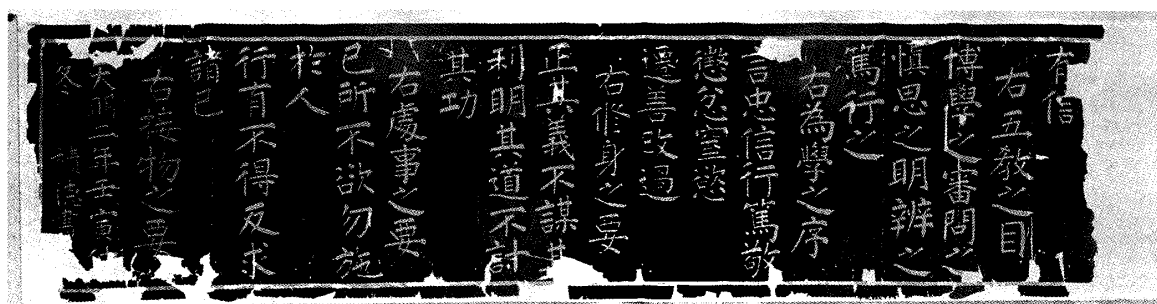 有信
右五教之目
博學之審問之
慎思之明辨之
篤行之
右為學之序
言忠信行篤敬
懲忿窒慾
遷善改過
右修身之要
正其義不謀其
利明其道不計
其功
右處事之要
己所不欲勿施
於人
行有不得反求
諸己
右接物之要
二年壬寅
冬